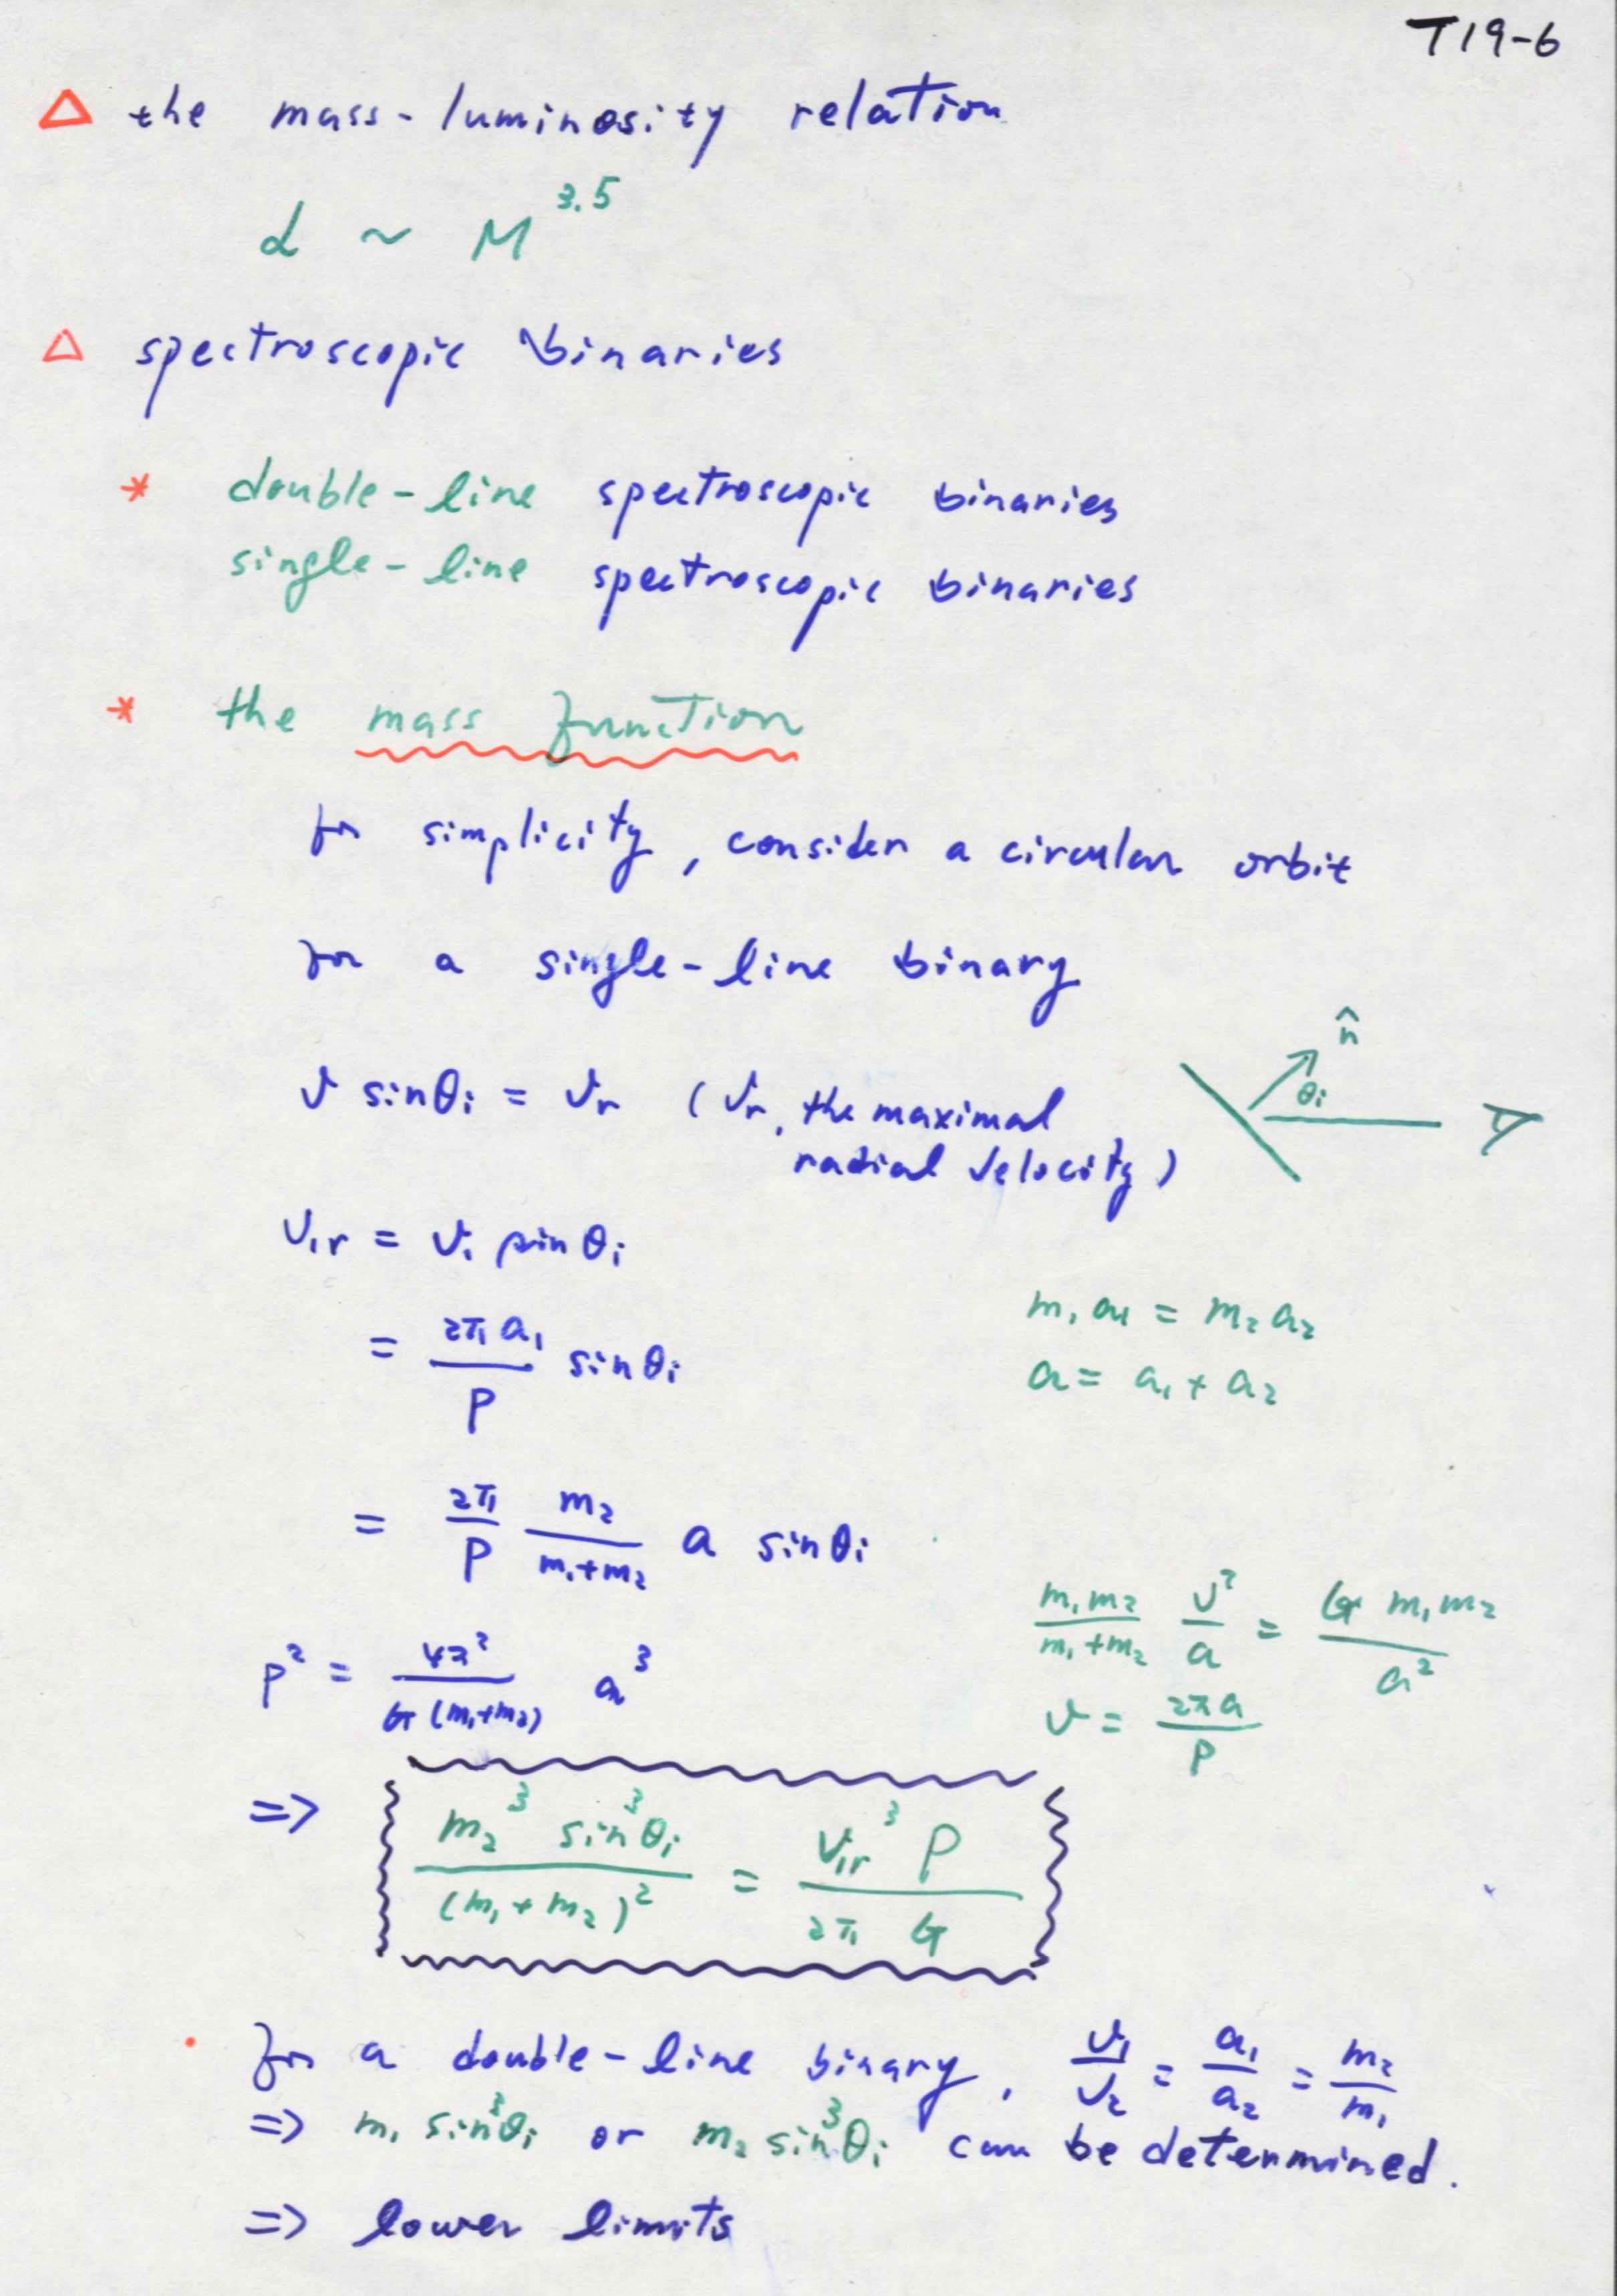 T19-6
△ the mass-luminosity relation
L ~ M^3.5
△ spectroscopic binaries
* double-line spectroscopic binaries
single-line spectroscopic binaries
* the mass function
for simplicity, consider a circular orbit
for a single-line binary
n̂
v sinθi = vr (vr, the maximal
θi
radial velocity)
v1r = v1 sinθi
= 2πa1/P sinθi
m1 a1 = m2 a2
a = a1 + a2
= 2π/P m2/(m1+m2) a sinθi
m1m2/(m1+m2) v²/a = G m1m2/a²
P² = 4π²/(G(m1+m2)) a³
v = 2πa/P
=> m2³ sin³θi/(m1+m2)² = v1r³ P/(2π G)
· for a double-line binary, v1/v2 = a1/a2 = m2/m1
=> m1 sin³θi or m2 sin³θi can be determined.
=> lower limits